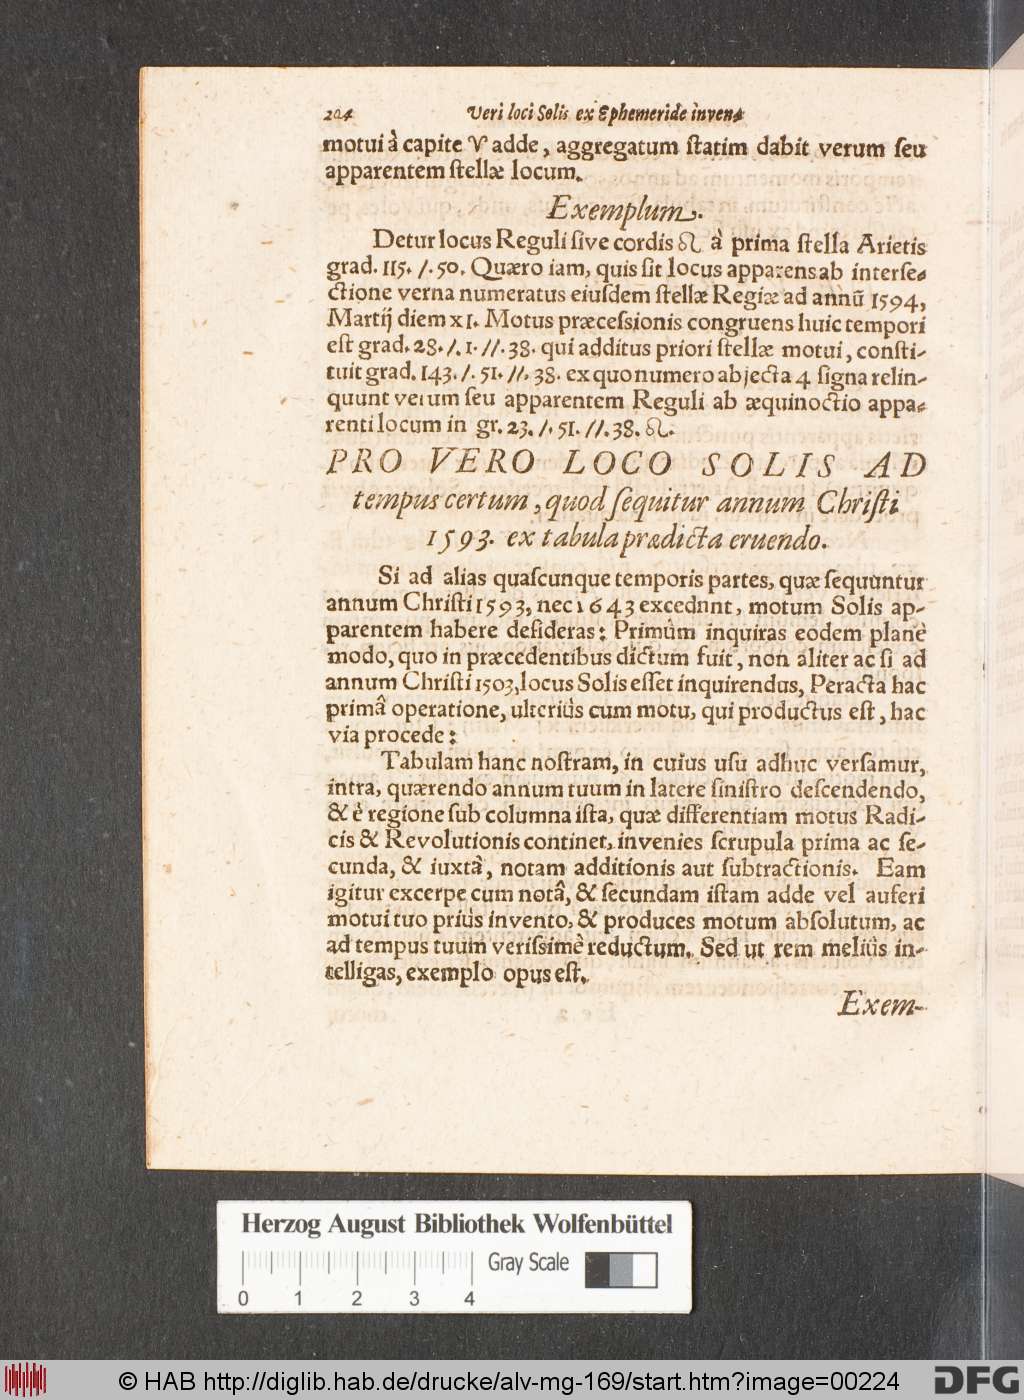 204 Veri loci Solis ex Ephemeride inven-
motui à capite ♈ adde, aggregatum ſtatim dabit verum ſeu
apparentem ſtellæ locum.
Exemplum.
Detur locus Reguli ſive cordis ♌ à prima ſtella Arietis
grad. 115. /. 50. Quæro iam, quis ſit locus apparens ab interſe-
ctione verna numeratus eiuſdem ſtellæ Regiæ ad annũ 1594,
Martij diem XI. Motus præceſsionis congruens huic tempori
eſt grad. 28. /. 1. //. 38. qui additus priori ſtellæ motui, conſti-
tuit grad. 143. /. 51. //. 38. ex quo numero abjecta 4 ſigna relin-
quunt verum ſeu apparentem Reguli ab æquinoctio appa-
renti locum in gr. 23. /. 51. //. 38. ♌.
PRO VERO LOCO SOLIS AD
tempus certum, quod ſequitur annum Chriſti
1593. ex tabula prædicta eruendo.
Si ad alias quaſcunque temporis partes, quæ ſequuntur
annum Chriſti 1593, nec 1643 excednnt, motum Solis ap-
parentem habere deſideras: Primùm inquiras eodem planè
modo, quo in præcedentibus dictum fuit, non aliter ac ſi ad
annum Chriſti 1503, locus Solis eſſet inquirendus, Peracta hac
primâ operatione, ulteriùs cum motu, qui productus eſt, hac
via procede:
Tabulam hanc noſtram, in cuius uſu adhuc verſamur,
intra, quærendo annum tuum in latere ſiniſtro deſcendendo,
& è regione ſub columna iſta, quæ differentiam motus Radi-
cis & Revolutionis continet, invenies ſcrupula prima ac ſe-
cunda, & iuxtà, notam additionis aut ſubtractionis. Eam
igitur excerpe cum notâ, & ſecundam iſtam adde vel auferi
motui tuo priùs invento, & produces motum abſolutum, ac
ad tempus tuum veriſsimè reductum. Sed ut rem meliùs in-
telligas, exemplo opus eſt.
Exem-
Herzog August Bibliothek Wolfenbüttel
Gray Scale
0 1 2 3 4
© HAB http://diglib.hab.de/drucke/alv-mg-169/start.htm?image=00224
DFG